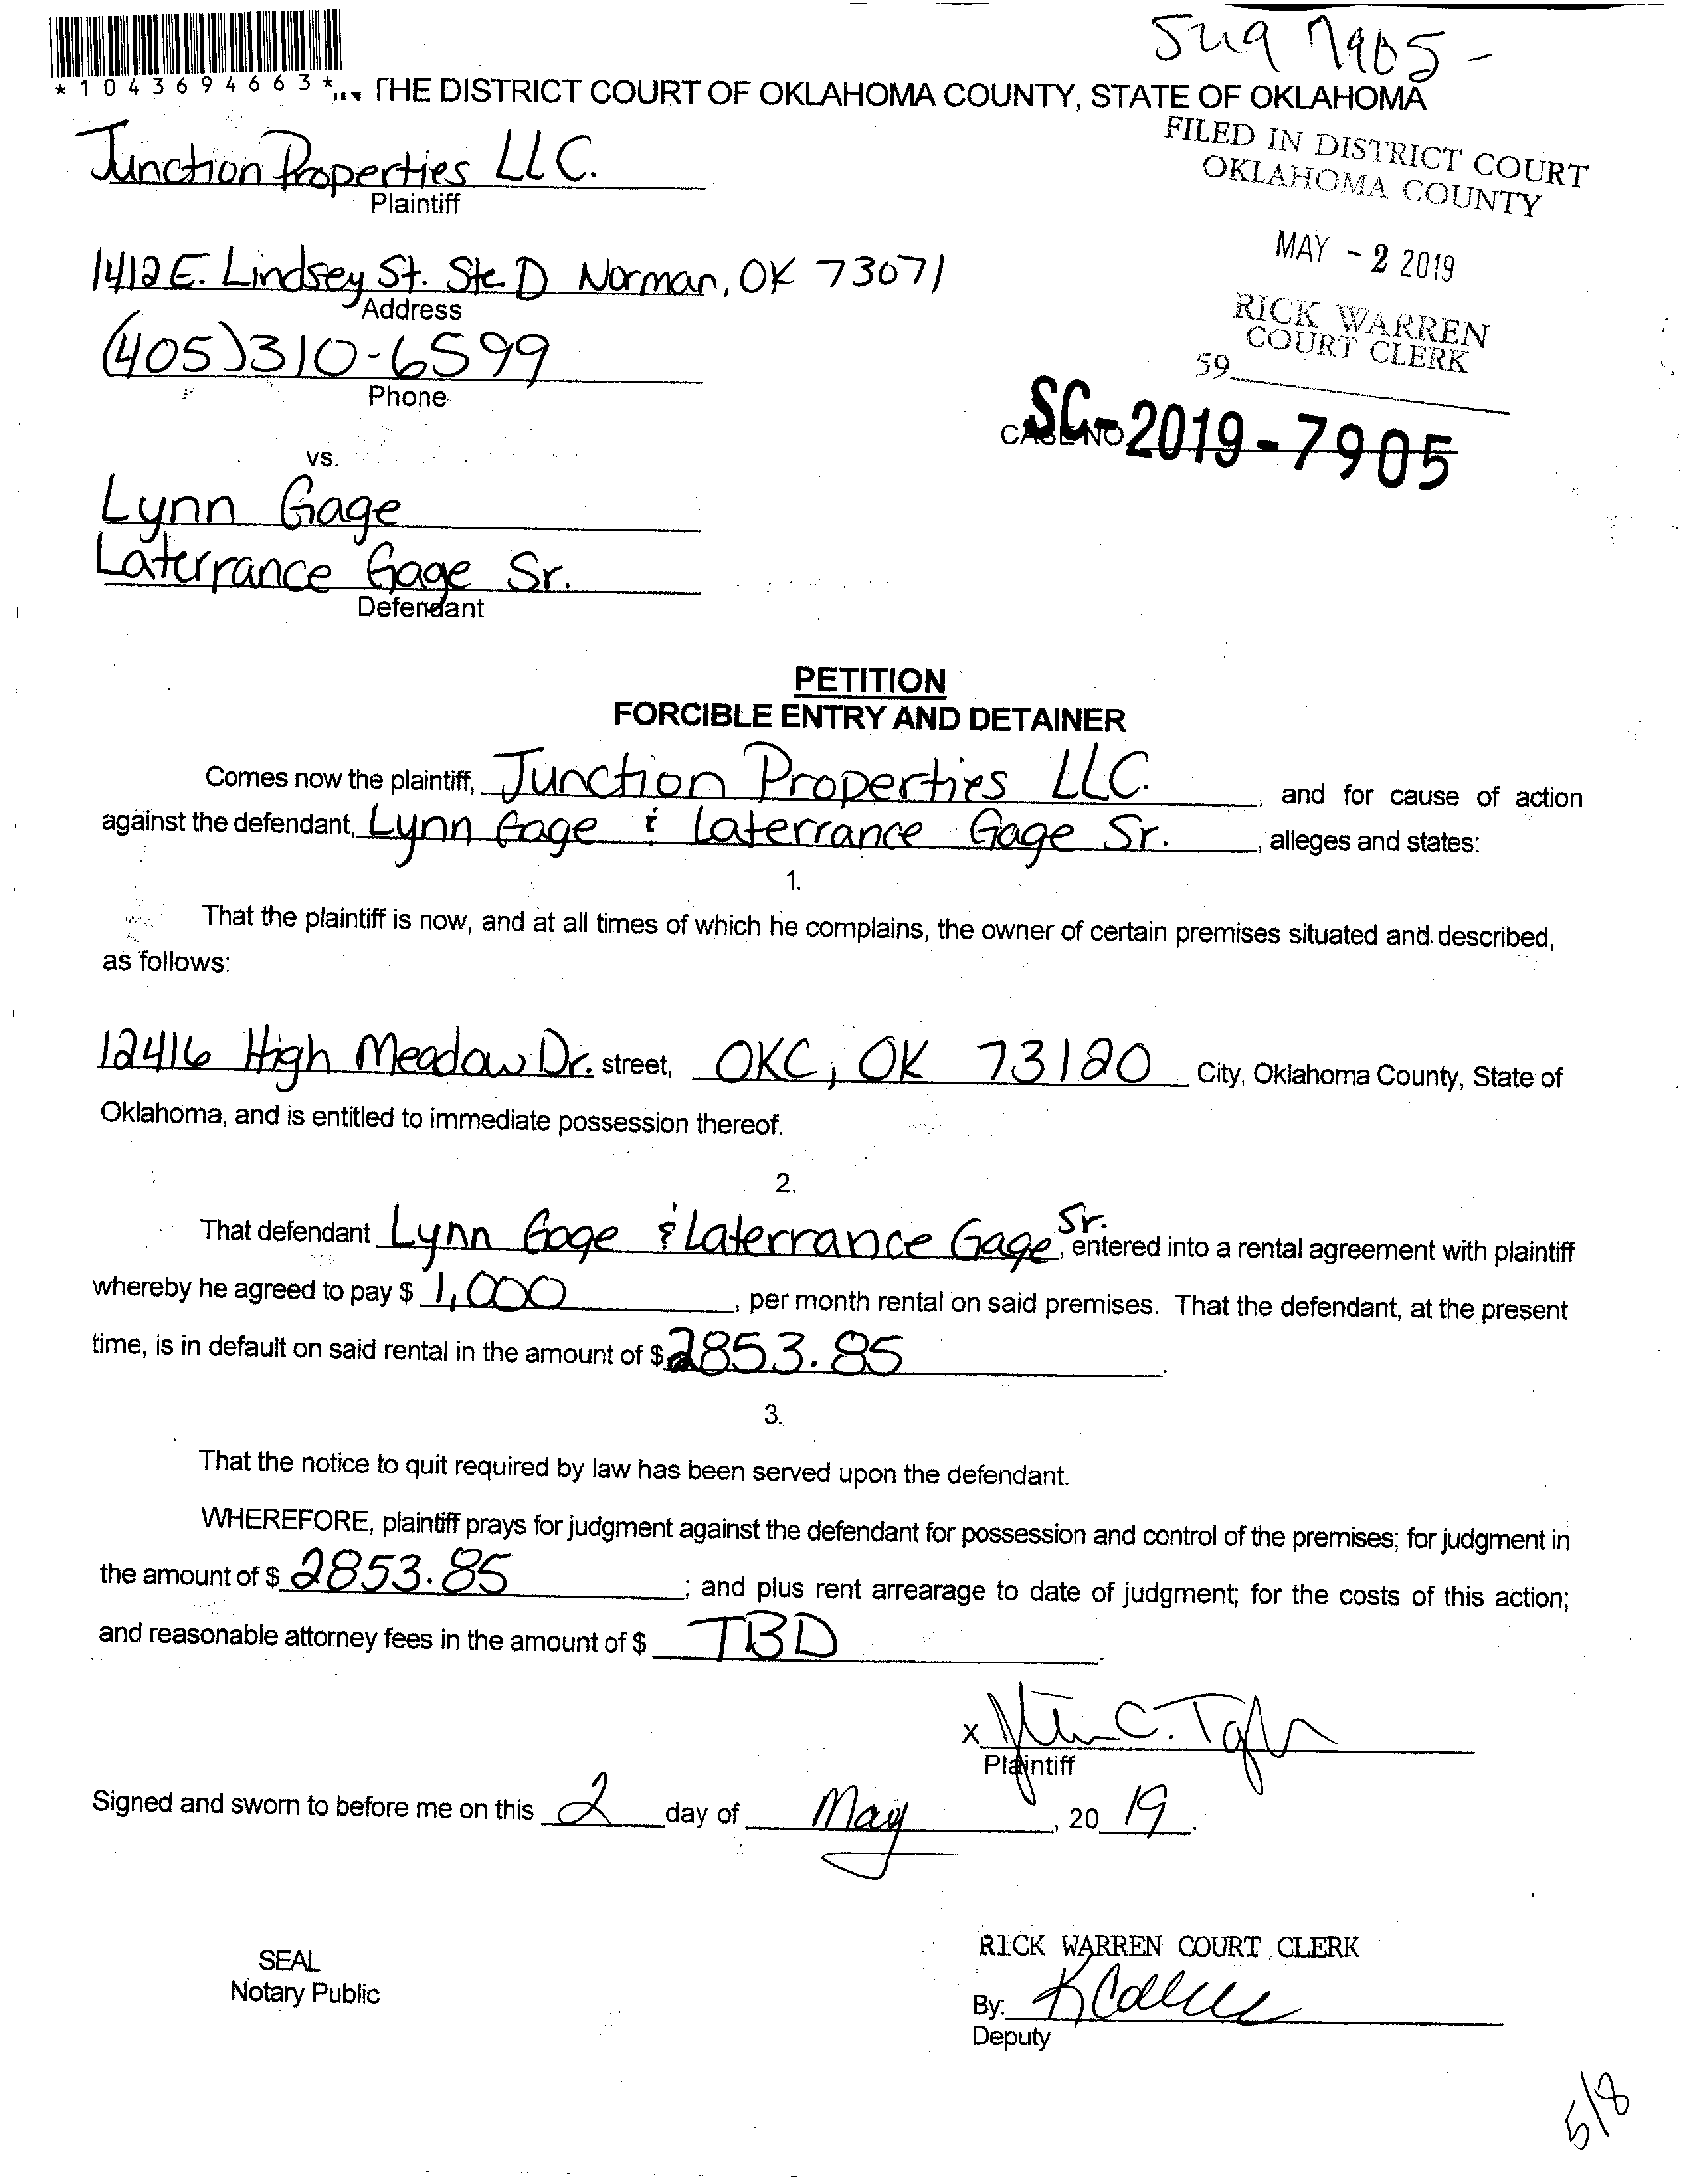 Sug 7905 -
*1043694663* THE DISTRICT COURT OF OKLAHOMA COUNTY, STATE OF OKLAHOMA
FILED IN DISTRICT COURT
OKLAHOMA COUNTY
Junction Properties LLC.
Plaintiff
MAY - 2 2019
1412 E. Lindsey St. Ste D Norman, OK 73071
Address
RICK WARREN
COURT CLERK
(405) 310-6599
Phone
59
CASE NO SC-2019-7905
vs.
Lynn Gage
Laterrance Gage Sr.
Defendant
PETITION
FORCIBLE ENTRY AND DETAINER
Comes now the plaintiff, Junction Properties LLC. , and for cause of action
against the defendant, Lynn Gage & Laterrance Gage Sr. , alleges and states:
1.
That the plaintiff is now, and at all times of which he complains, the owner of certain premises situated and described,
as follows:
12416 High Meadow Dr. street, OKC, OK 73120 City, Oklahoma County, State of
Oklahoma, and is entitled to immediate possession thereof.
2.
That defendant Lynn Gage & Laterrance Gage Sr. , entered into a rental agreement with plaintiff
whereby he agreed to pay $ 1,000 , per month rental on said premises. That the defendant, at the present
time, is in default on said rental in the amount of $ 2853.85 .
3.
That the notice to quit required by law has been served upon the defendant.
WHEREFORE, plaintiff prays for judgment against the defendant for possession and control of the premises; for judgment in
the amount of $ 2853.85 ; and plus rent arrearage to date of judgment; for the costs of this action;
and reasonable attorney fees in the amount of $ TBD .
x
Plaintiff
Signed and sworn to before me on this 2 day of May , 20 19 .
RICK WARREN COURT CLERK
SEAL
Notary Public
By:
Deputy
5/8